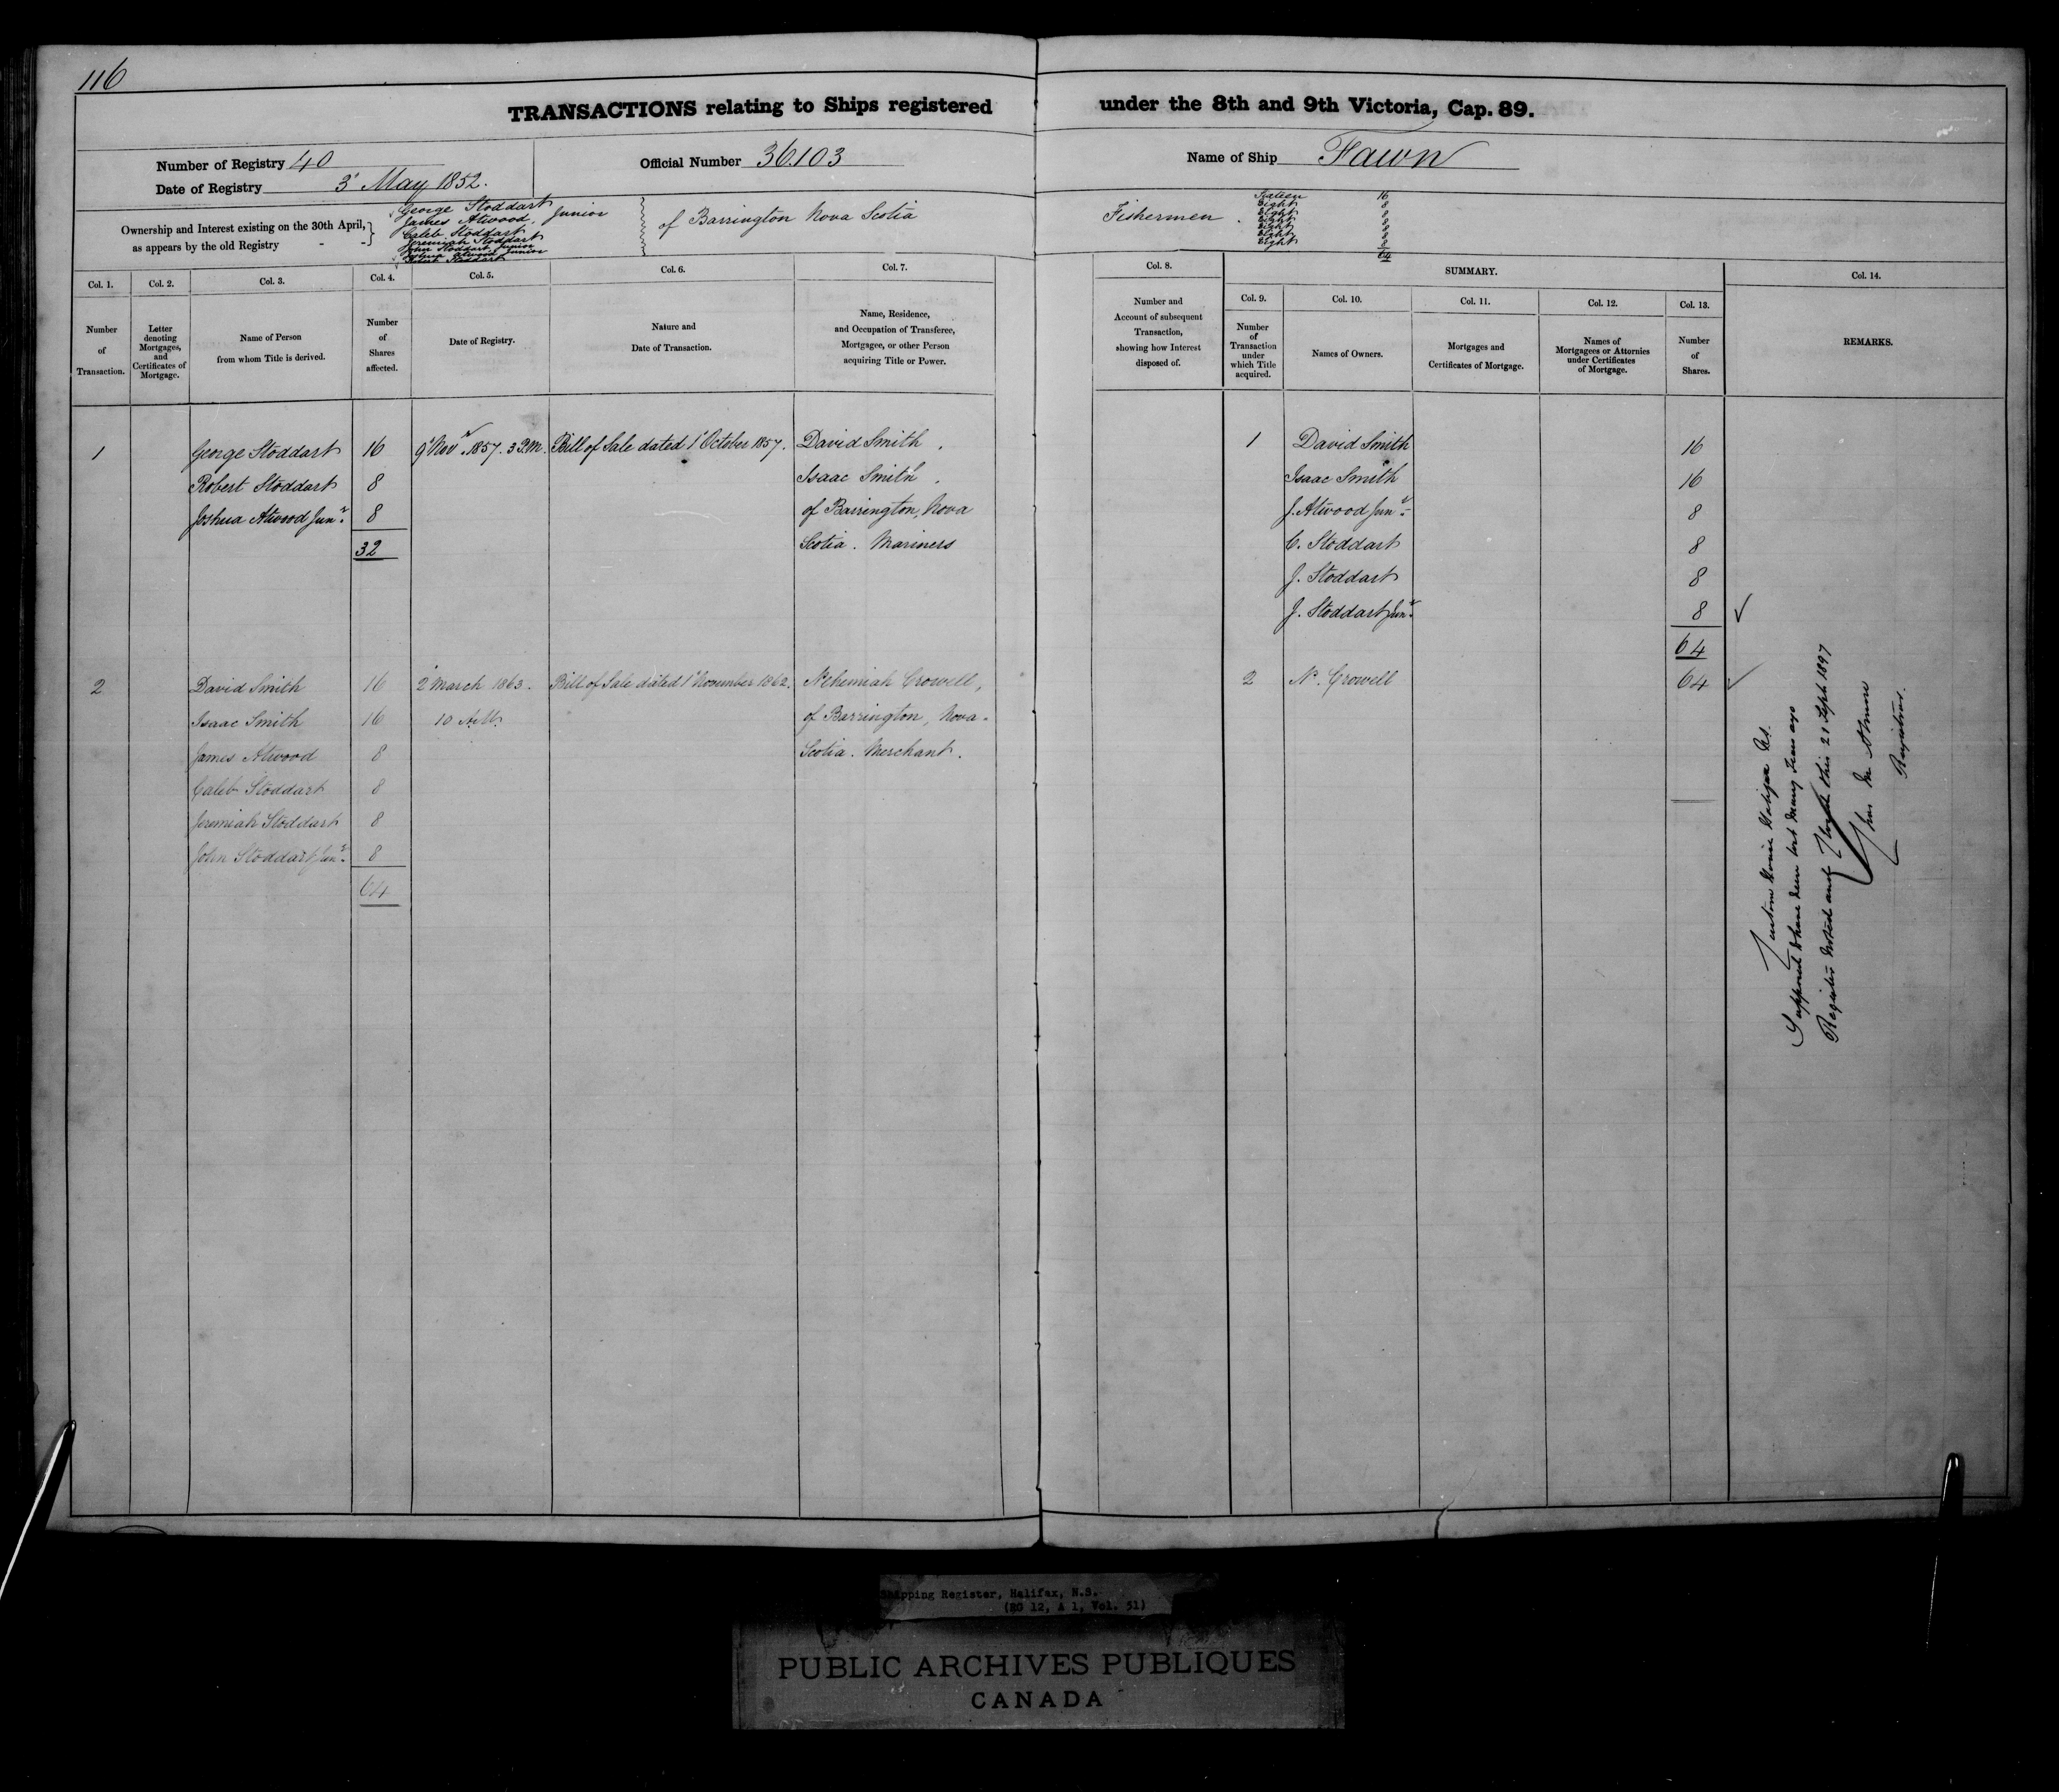 116
TRANSACTIONS relating to Ships registered under the 8th and 9th Victoria, Cap. 89.
Number of Registry 40
Date of Registry 3' May 1852.
Official Number 36.103
Name of Ship Fawn
Ownership and Interest existing on the 30th April, as appears by the old Registry
George Stoddart
James Atwood, Junior
Caleb Stoddart
Jeremiah Stoddart
John Stoddart, Junior
Joshua Atwood Junior
Robert Stoddart
of Barrington Nova Scotia
Fishermen
Sixteen 16
Eight 8
Eight 8
Eight 8
Eight 8
Eight 8
Eight 8
64
Col. 1. Number of Transaction.
Col. 2. Letter denoting Mortgages, and Certificates of Mortgage.
Col. 3. Name of Person from whom Title is derived.
Col. 4. Number of Shares affected.
Col. 5. Date of Registry.
Col. 6. Nature and Date of Transaction.
Col. 7. Name, Residence, and Occupation of Transferee, Mortgagee, or other Person acquiring Title or Power.
Col. 8. Number and Account of subsequent Transaction, showing how Interest disposed of.
SUMMARY.
Col. 9. Number of Transaction under which Title acquired.
Col. 10. Names of Owners.
Col. 11. Mortgages and Certificates of Mortgage.
Col. 12. Names of Mortgagees or Attornies under Certificates of Mortgage.
Col. 13. Number of Shares.
Col. 14. REMARKS.
1 George Stoddart 16 9' Novr. 1857. 3 P.M. Bill of Sale dated 1' October 1857. David Smith,
Robert Stoddart 8 Isaac Smith,
Joshua Atwood Junr. 8 of Barrington, Nova
32 Scotia. Mariners
1 David Smith 16
Isaac Smith 16
J. Atwood Junr. 8
C. Stoddart 8
J. Stoddart 8
J. Stoddart Junr. 8 ✓
64
2 David Smith 16 2' March 1863. Bill of Sale dated 1' November 1862. Nehemiah Crowell,
Isaac Smith 16 10 A.M. of Barrington, Nova-
James Atwood 8 Scotia. Merchant.
Caleb Stoddart 8
Jeremiah Stoddart 8
John Stoddart Junr. 8
64
2 N. Crowell 64 ✓
Supposed to have been lost many years ago
Register noted and closed this 21 Sept 1897
Registrar.
Shipping Register, Halifax, N.S.
(RG 12, A 1, Vol. 51)
PUBLIC ARCHIVES PUBLIQUES
CANADA